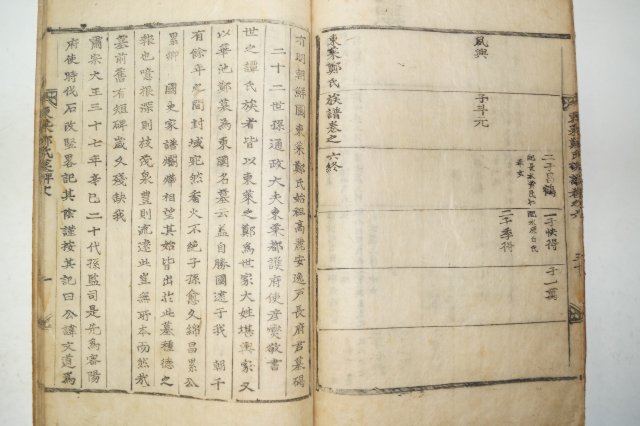 夙興
子斗元
二子昌鶴
一子快得
子一莫
二子季得
東萊鄭氏族譜卷之六終
有明朝鮮國東萊鄭氏始祖高麗安逸戶長府君墓碣
二十二世孫通政大夫東萊都護府使彥燮敬書
世之譚氏族者皆以東萊之鄭爲世家大姓堪輿家又
以華池鄭墓爲東國名墓云盖自勝國逮于我 朝千
有餘年之間封域宛然香火不絶子孫愈久綿昌累公
累卿 國史家譜爛燁相望其始皆出於此墓種德之
報也噫根深則枝茂泉豊則流遠此豈無所本而然哉
墓前舊有短碑歲久殘缺我
肅宗大王三十七年辛巳二十代孫監司是先爲審陽
府使時伐石改竪畧記其陰謹按其記曰公諱文道爲